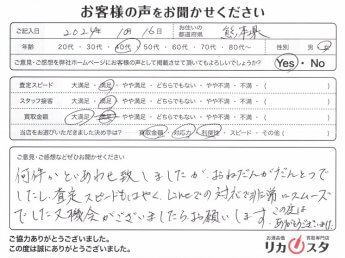 お客様の声をお聞かせください
ご記入日 2024年 10月 16日 お住いの都道府県 熊本県
年齢 20代・30代・40代・50代・60代・70代・80代〜 性別 男・女
ご意見・ご感想を弊社ホームページにお客様の声として掲載させて頂いてもよろしいでしょうか? Yes・No
査定スピード 大満足・満足・やや満足・どちらでもない・やや不満・不満・( )
スタッフ接客 大満足・満足・やや満足・どちらでもない・やや不満・不満・( )
買取金額 大満足・満足・やや満足・どちらでもない・やや不満・不満・( )
当店をお選びいただきました決め手は? 買取金額・対応力・利便性・スピード・その他( )
ご意見・ご感想などぜひお聞かせください
何件かといあわせ致しましたが おねだんがだんとつで
したし、査定スピードもはやく、Lineでの対応で非常にスムーズ
でした 又機会がございましたらお願いします。この度は
ありがとうございました
ご協力ありがとうございました。
この度は誠にありがとうございました。
お酒高価買取専門店
リカスタ